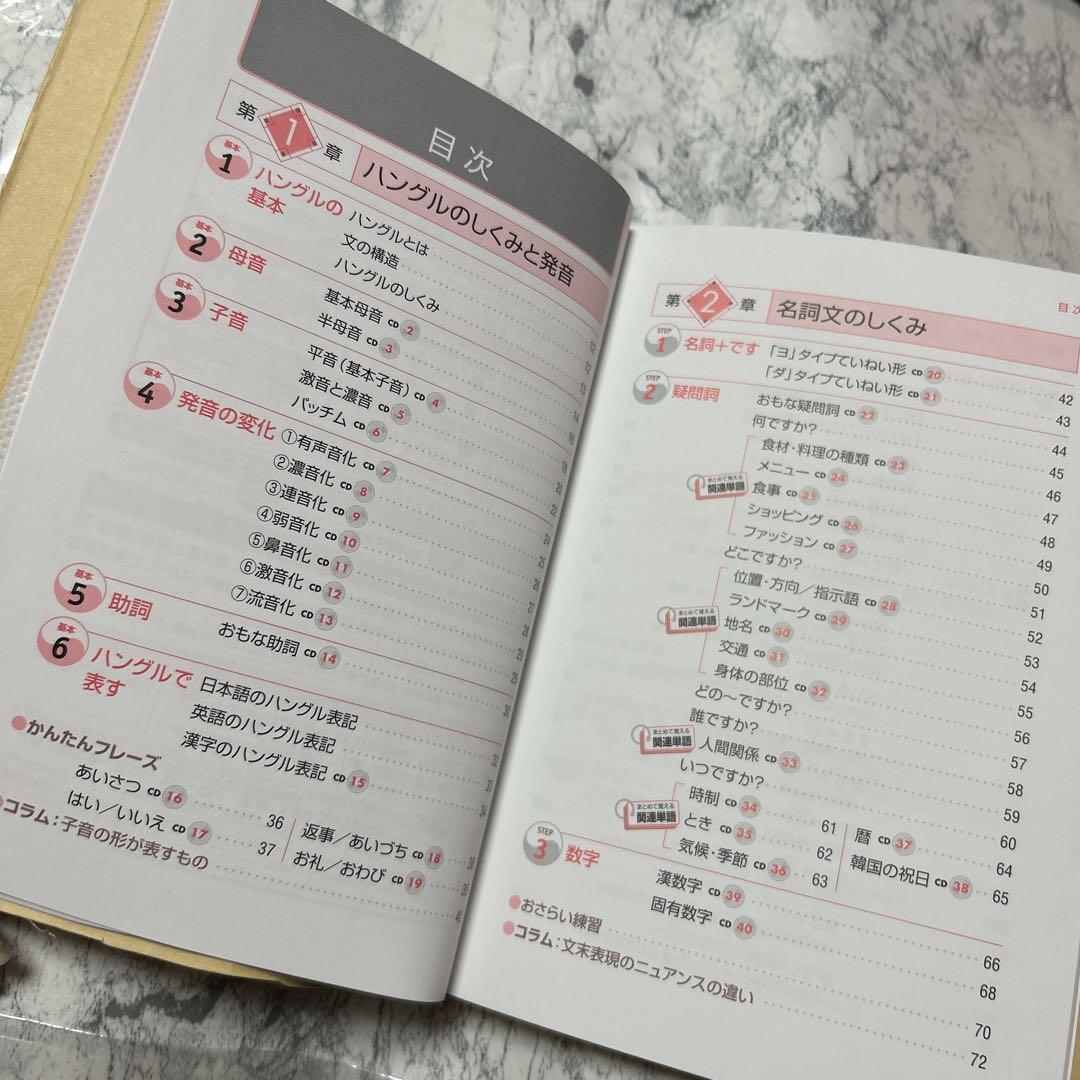 目次
第1章 ハングルのしくみと発音
基本1 ハングルの基本
ハングルとは 12
文の構造 12
ハングルのしくみ 13
基本2 母音
基本母音 CD 2 14
半母音 CD 3
基本3 子音
平音(基本子音) CD 4
激音と濃音 CD 5
パッチム CD 6
基本4 発音の変化
①有声音化 CD 7
②濃音化 CD 8
③連音化 CD 9
④弱音化 CD 10
⑤鼻音化 CD 11
⑥激音化 CD 12
⑦流音化 CD 13
基本5 助詞
おもな助詞 CD 14
基本6 ハングルで表す
日本語のハングル表記 32
英語のハングル表記 33
漢字のハングル表記 CD 15 34
●かんたんフレーズ
あいさつ CD 16 36
はい/いいえ CD 17 37
返事/あいづち CD 18 38
お礼/おわび CD 19 39
●コラム:子音の形が表すもの 40
目次
第2章 名詞文のしくみ
STEP 1 名詞+です
「ヨ」タイプていねい形 CD 20 42
「ダ」タイプていねい形 CD 21 43
STEP 2 疑問詞
おもな疑問詞 CD 22 44
何ですか? 45
まとめて覚える 関連単語
食材・料理の種類 CD 23 46
メニュー CD 24 47
食事 CD 25 48
ショッピング CD 26 49
ファッション CD 27 50
どこですか? 51
まとめて覚える 関連単語
位置・方向/指示語 CD 28 52
ランドマーク CD 29 53
地名 CD 30 54
交通 CD 31 55
身体の部位 CD 32 56
どの〜ですか? 57
誰ですか? 58
まとめて覚える 関連単語
人間関係 CD 33 59
いつですか? 60
まとめて覚える 関連単語
時制 CD 34 61
とき CD 35 62
気候・季節 CD 36 63
暦 CD 37 64
韓国の祝日 CD 38 65
STEP 3 数字
漢数字 CD 39 66
固有数字 CD 40 68
●おさらい練習 70
●コラム:文末表現のニュアンスの違い 72